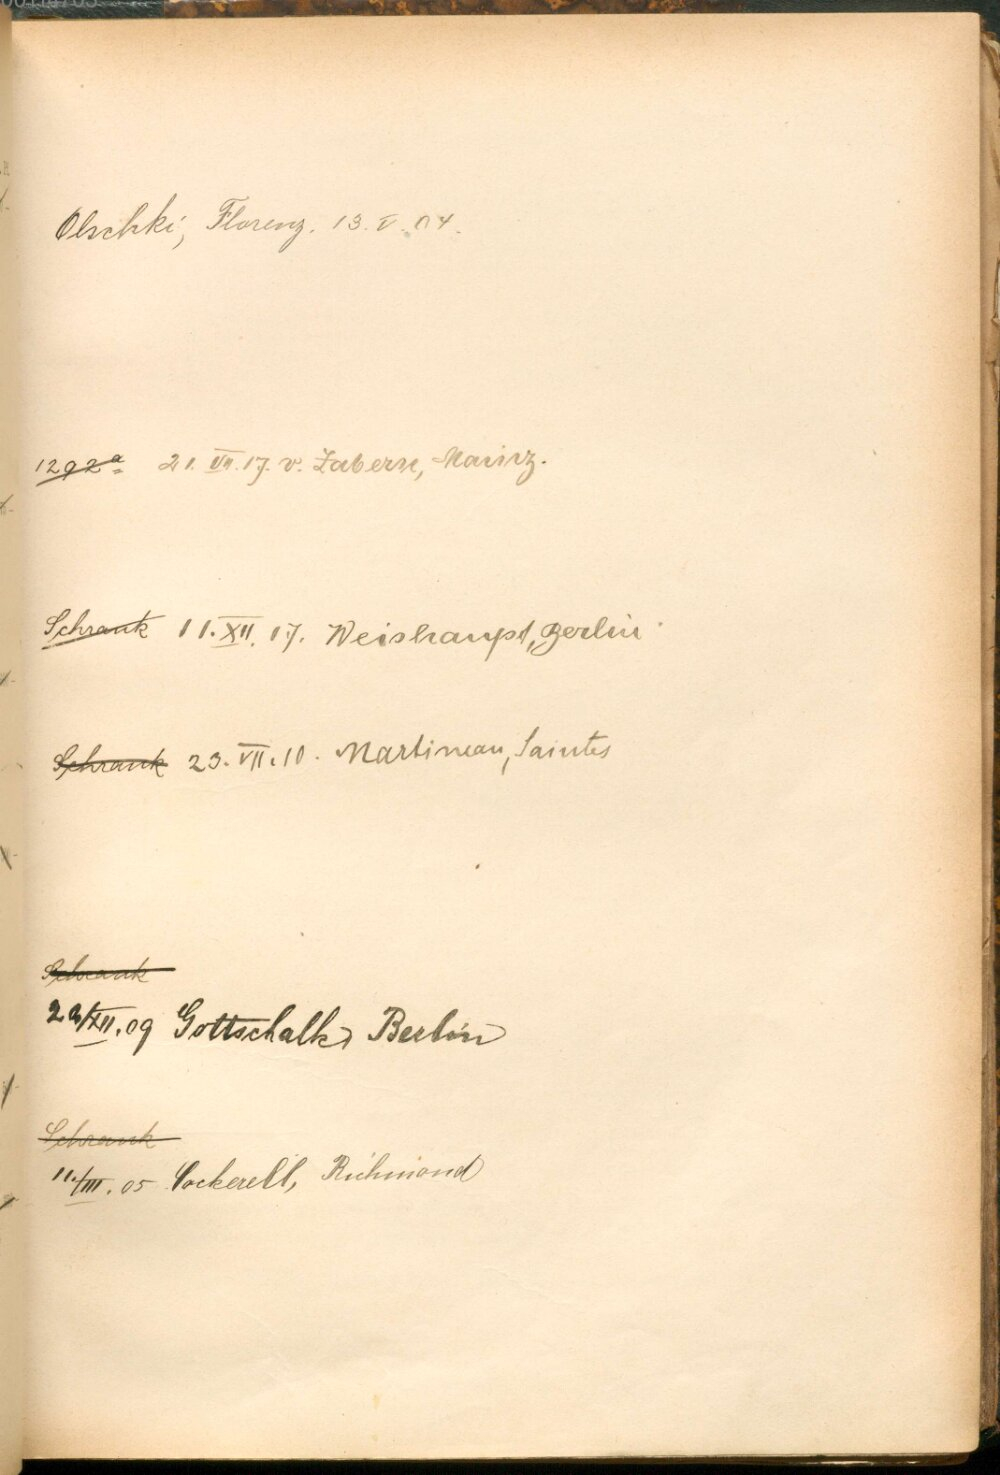 Olschki, Florenz. 13. V. 04.
1292a 21. VII. 17. v. Zabern, Mainz.
Schrank 11. XII. 17. Weishaupt, Berlin
Schrank 23. VII. 10. Martineau, Saintes
Schrank
/XII. 09 Gottschalk, Berlin
Schrank
11./III. 05 Cockerell, Richmond